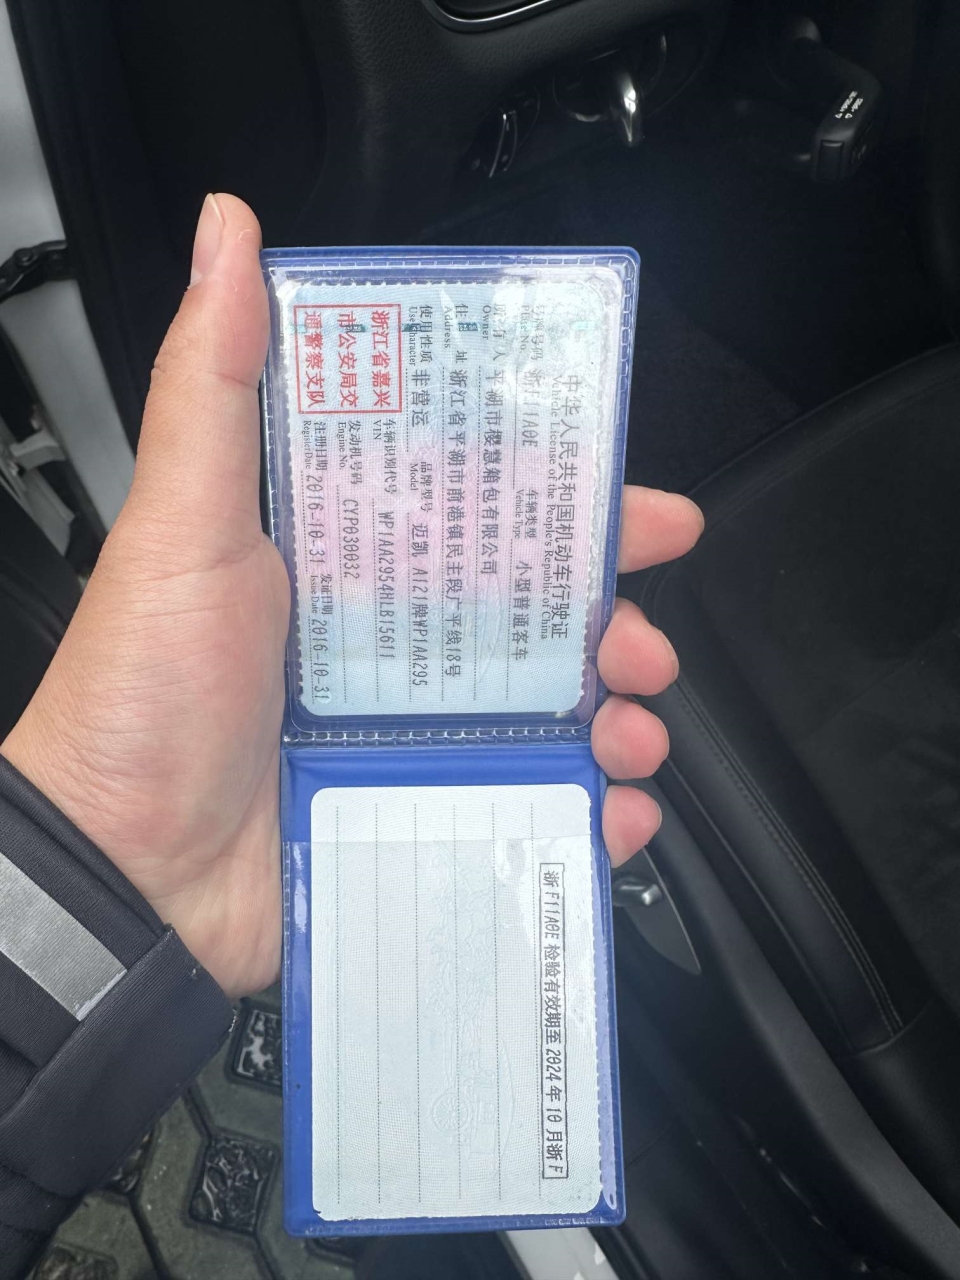 中华人民共和国机动车行驶证
Vehicle License of the People's Republic of China
号牌号码 浙F11A0E 车辆类型 小型普通客车
Plate No. Vehicle Type
所有人 平湖市樱慧箱包有限公司
Owner
住址 浙江省平湖市前港镇民主段广平线18号
Address
使用性质 非营运 品牌型号 迈凯 A121牌WP1AA295
Use Character Model
浙江省嘉兴
市公安局交
通警察支队
车辆识别代号 WP1AA2954HLB15611
VIN
发动机号码 CYP030032
Engine No.
注册日期 2016-10-31 发证日期 2016-10-31
Register Date Issue Date
浙F11A0E 检验有效期至 2024年10月浙F